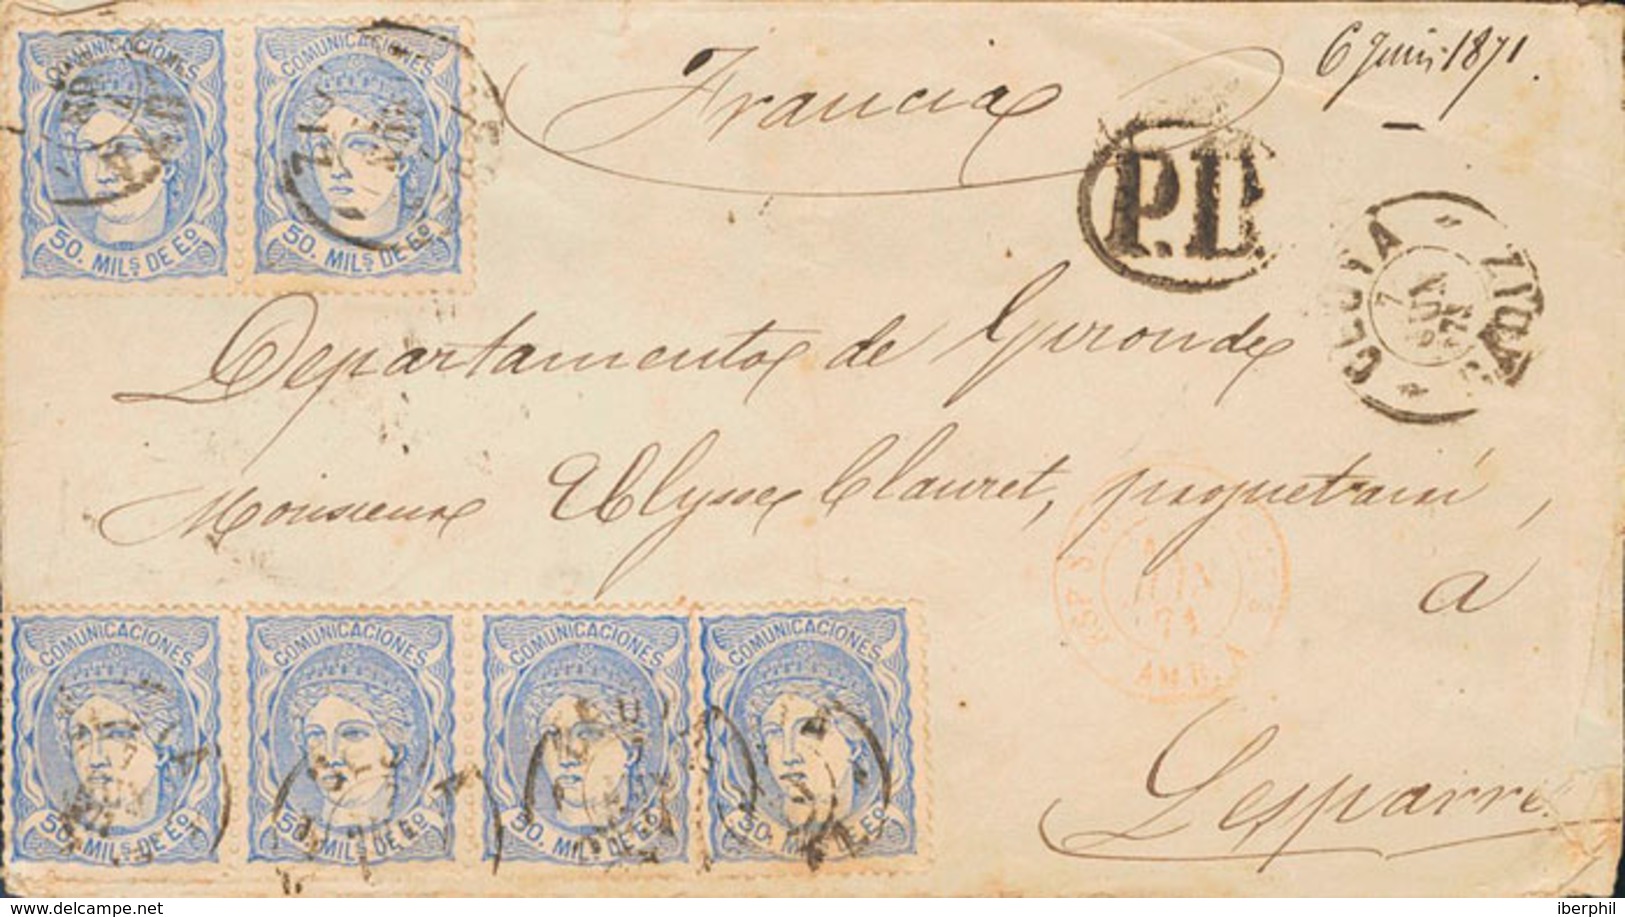 COMUNICACIONES
50. MILS DE EO
COMUNICACIONES
50. MILS DE EO
Francia
6 Juin 1871.
P.D.
CEUTA
CADIZ
7
JUN
71
Departamento de Gironde
Monsieur Ulysse Clauret, propriétaire,
JUIN
71
AMB.
a
Lesparre
COMUNICACIONES
50. MILS DE EO
COMUNICACIONES
50. MILS DE EO
COMUNICACIONES
50. MILS DE EO
COMUNICACIONES
50. MILS DE EO
iberphil
www.delcampe.net